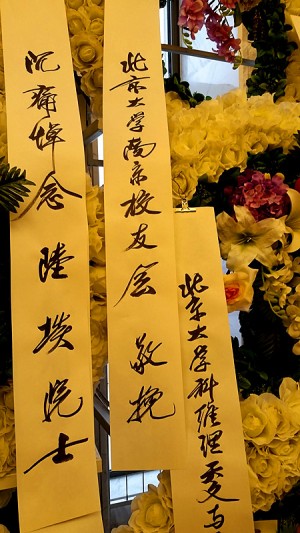 沉痛悼念陸埮院士
北京大学南京校友会敬挽
北京大学科維理天文与